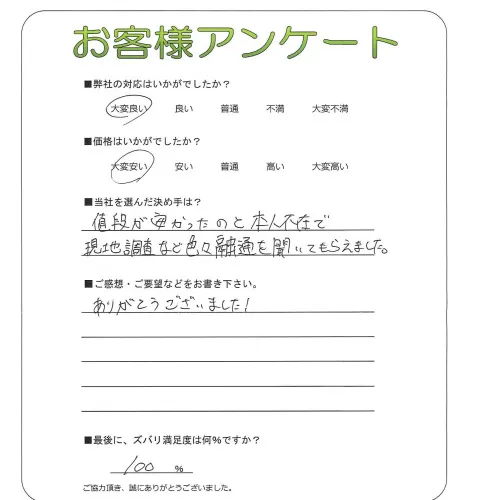 お客様アンケート
■弊社の対応はいかがでしたか？
大変良い 良い 普通 不満 大変不満
■価格はいかがでしたか？
大変安い 安い 普通 高い 大変高い
■当社を選んだ決め手は？
値段が安かったのと本人不在で
現地調査など色々融通を聞いてもらえました。
■ご感想・ご要望などをお書き下さい。
ありがとうございました!
■最後に、ズバリ満足度は何%ですか？
100 %
ご協力頂き、誠にありがとうございました。